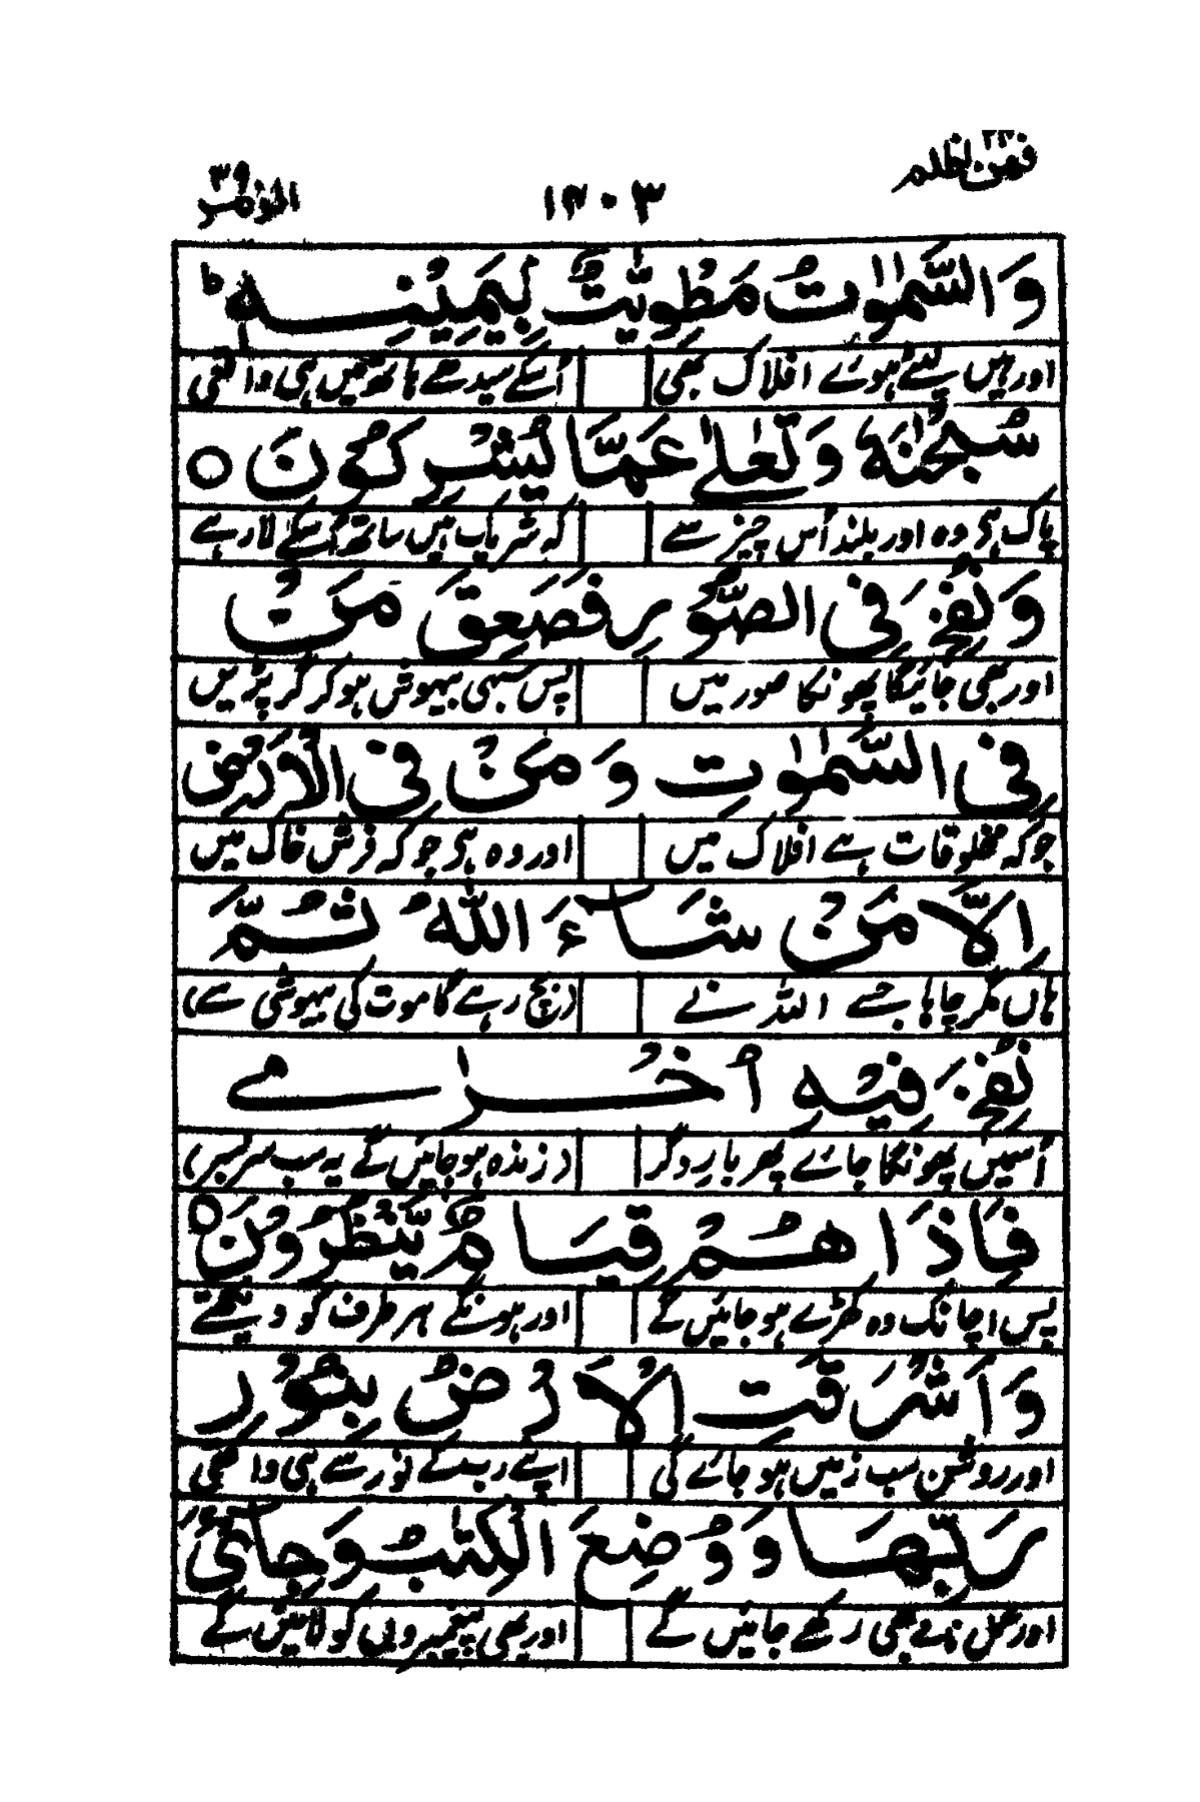 فمن اظلم ۲۴ ۱۴۰۳ الزمر ۳۹
وَالسَّمٰوٰتُ مَطْوِيّٰتٌۢ بِيَمِيْنِهٖ ؕ
اور ہیں لپٹے ہوئے افلاک بھی اُسکے سیدھے ہاتھ میں ہی واقعی
سُبْحٰنَهٗ وَتَعٰلٰى عَمَّا يُشْرِكُوْنَ ○
پاک ہی وہ اور بلند اُس چیز سے کہ شریک ہیں ساتھ اُسکے لا رہے
وَنُفِخَ فِى الصُّوْرِ فَصَعِقَ مَنْ
اور بھی جائیگا پھونکا صور میں پس سبھی بیہوش ہو کر گر پڑیں
فِى السَّمٰوٰتِ وَمَنْ فِى الْاَرْضِ
جو کہ مخلوقات ہے افلاک میں اور وہ ہی جو کہ فرش خاک میں
اِلَّا مَنْ شَآءَ اللّٰهُ ثُمَّ
ہاں مگر چاہا جسے اللہ نے (بچ رہے گا موت کی بیہوشی سے)
نُفِخَ فِيْهِ اُخْرٰى
اُسمیں پھونکا جائے پھر بار دگر (زندہ ہو جائیں گے یہ سب سربسر)
فَاِذَا هُمْ قِيَامٌ يَّنْظُرُوْنَ ○
پس اچانک وہ کھڑے ہو جائیں گے اور ہونگے ہر طرف کو دیکھتے
وَاَشْرَقَتِ الْاَرْضُ بِنُوْرِ
اور روشن سب زمیں ہو جائے گی اپنے رب کے نور سے ہی واقعی
رَبِّهَا وَوُضِعَ الْكِتٰبُ وَجِاىْٓءَ
اور عمل نامے بھی رکھے جائیں گے اور بھی پیغمبروں کو لائیں گے